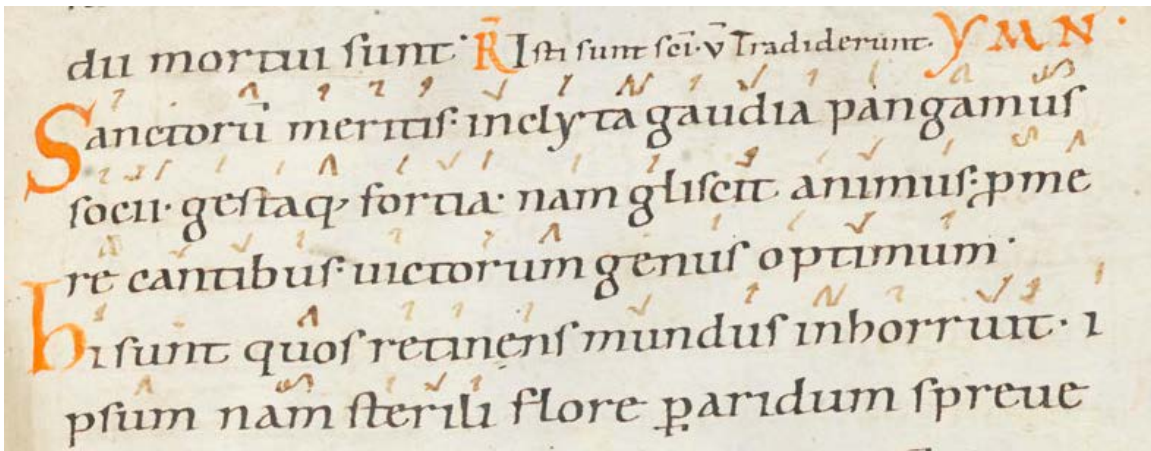 dii mortui sunt. R̄ Isti sunt sc̄i. v̄ Tradiderunt. YMN.
Sanctorū meritis: inclyta gaudia pangamus
socii. gestaq; fortia. nam gliscit animus: ꝓme
re cantibus: uictorum genus optimum.
hi sunt quos retinens mundus inhorruit. i
psum nam sterili flore ꝑaridum spreue